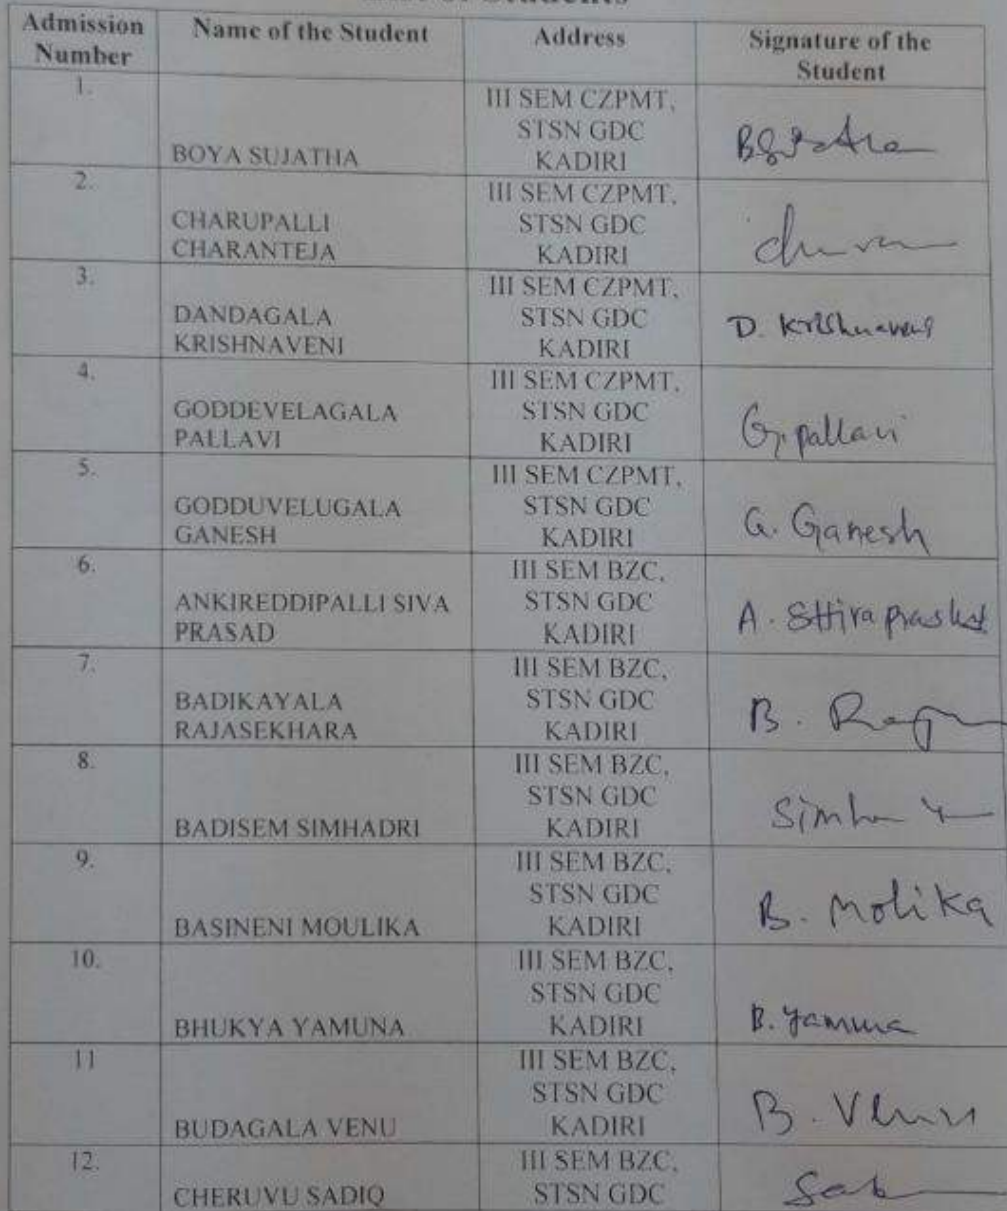 Admission Number
Name of the Student
Address
Signature of the Student
1.
BOYA SUJATHA
III SEM CZPMT,
STSN GDC
KADIRI
2.
CHARUPALLI
CHARANTEJA
III SEM CZPMT,
STSN GDC
KADIRI
3.
DANDAGALA
KRISHNAVENI
III SEM CZPMT,
STSN GDC
KADIRI
D. Krishnaveni
4.
GODDEVELAGALA
PALLAVI
III SEM CZPMT,
STSN GDC
KADIRI
G. pallavi
5.
GODDUVELUGALA
GANESH
III SEM CZPMT,
STSN GDC
KADIRI
G. Ganesh
6.
ANKIREDDIPALLI SIVA
PRASAD
III SEM BZC,
STSN GDC
KADIRI
A.
7.
BADIKAYALA
RAJASEKHARA
III SEM BZC,
STSN GDC
KADIRI
B.
8.
BADISEM SIMHADRI
III SEM BZC,
STSN GDC
KADIRI
9.
BASINENI MOULIKA
III SEM BZC,
STSN GDC
KADIRI
B. Molika
10.
BHUKYA YAMUNA
III SEM BZC,
STSN GDC
KADIRI
B. Yamuna
11
BUDAGALA VENU
III SEM BZC,
STSN GDC
KADIRI
B. Venu
12.
CHERUVU SADIQ
III SEM BZC,
STSN GDC